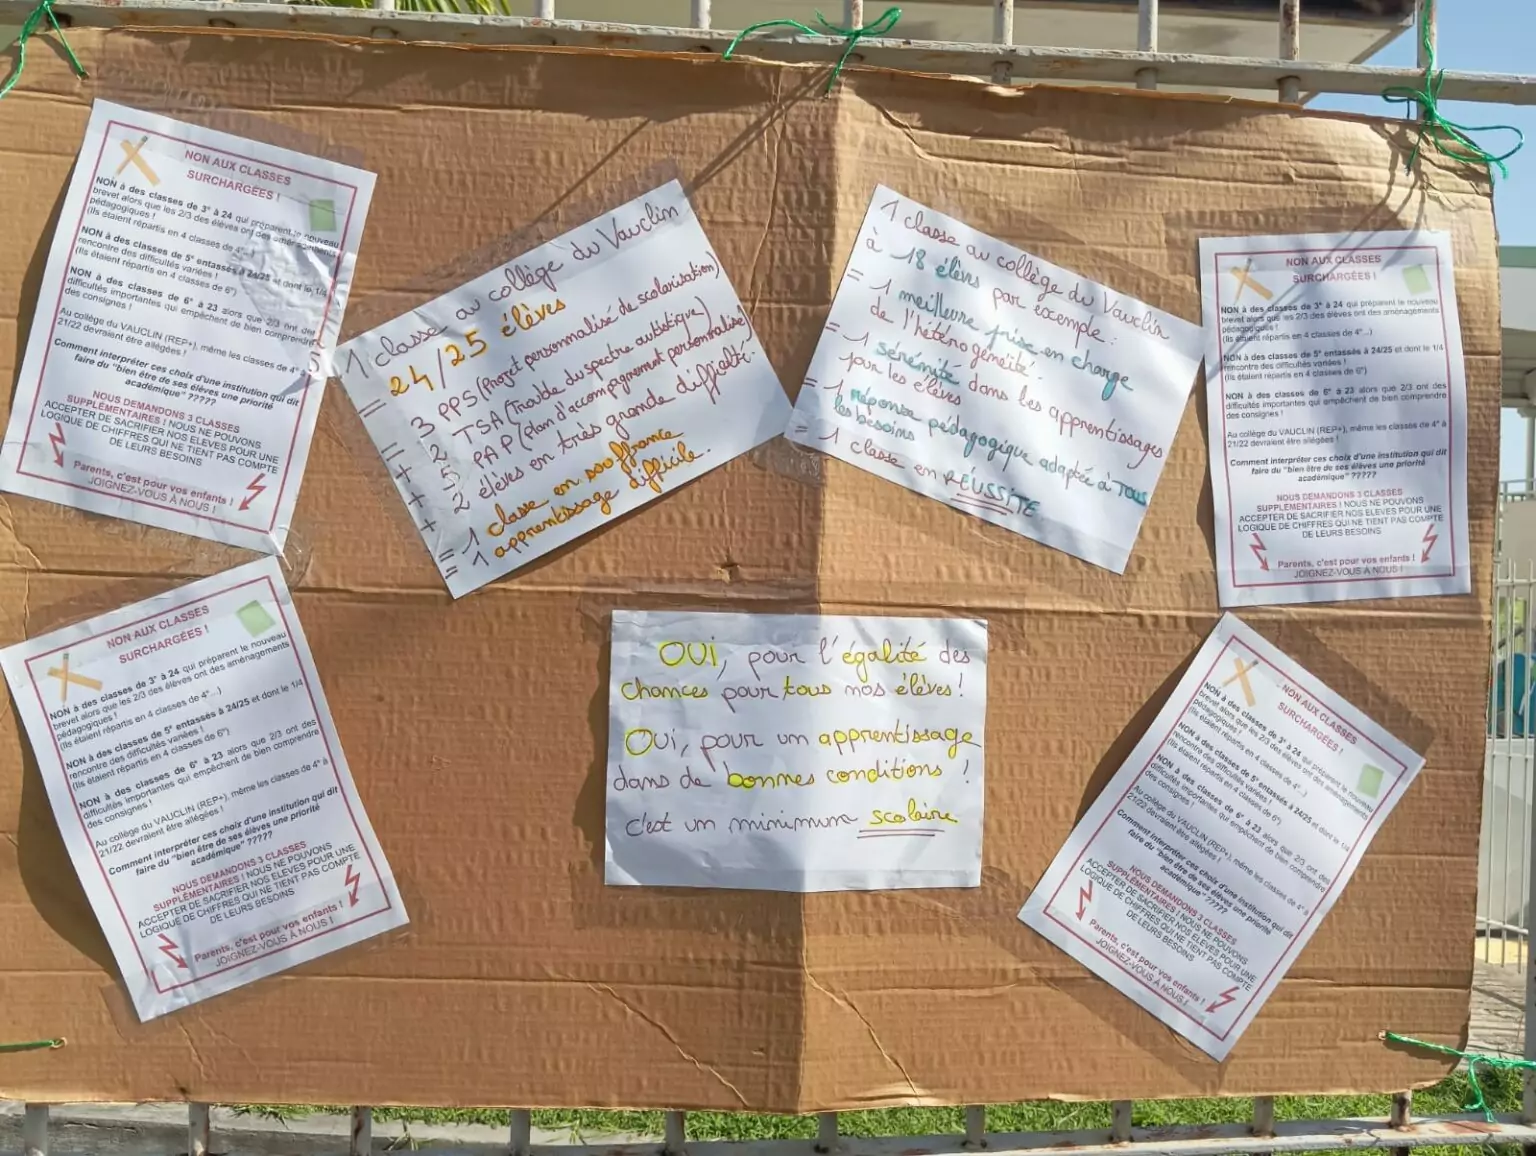 NON AUX CLASSES
SURCHARGÉES !
NON à des classes de 3° à 24 qui préparent le nouveau
brevet alors que les 2/3 des élèves ont des aménagements
pédagogiques !
(Ils étaient répartis en 4 classes de 4°...)
NON à des classes de 5° entassés à 24/25 et dont le 1/4
rencontre des difficultés variées !
(Ils étaient répartis en 4 classes de 6°)
NON à des classes de 6° à 23 alors que 2/3 ont des
difficultés importantes qui empêchent de bien comprendre
des consignes !
Au collège du VAUCLIN (REP+), même les classes de 4° à
21/22 devraient être allégées !
Comment interpréter ces choix d'une institution qui dit
faire du "bien être de ses élèves une priorité
académique" ?????
NOUS DEMANDONS 3 CLASSES
SUPPLÉMENTAIRES ! NOUS NE POUVONS
ACCEPTER DE SACRIFIER NOS ELEVES POUR UNE
LOGIQUE DE CHIFFRES QUI NE TIENT PAS COMPTE
DE LEURS BESOINS
Parents, c'est pour vos enfants !
JOIGNEZ-VOUS À NOUS !
1 classe au collège du Vauclin
24/25 élèves
= 3 PPS (Projet personnalisé de scolarisation)
+ 2 TSA (Trouble du spectre autistique)
+ 5 PAP (plan d'accompagnement personnalisé)
+ 2 élèves en très grande difficulté.
= 1 classe en souffrance
= 1 apprentissage difficile.
1 classe au collège du Vauclin
à 18 élèves par exemple :
= 1 meilleure prise en charge
de l'hétérogéneité.
= 1 sérénité dans les apprentissages
pour les élèves
= 1 réponse pédagogique adaptée à TOUS
les besoins
= 1 classe en RÉUSSITE
NON AUX CLASSES
SURCHARGÉES !
NON à des classes de 3° à 24 qui préparent le nouveau
brevet alors que les 2/3 des élèves ont des aménagements
pédagogiques !
(Ils étaient répartis en 4 classes de 4°...)
NON à des classes de 5° entassés à 24/25 et dont le 1/4
rencontre des difficultés variées !
(Ils étaient répartis en 4 classes de 6°)
NON à des classes de 6° à 23 alors que 2/3 ont des
difficultés importantes qui empêchent de bien comprendre
des consignes !
Au collège du VAUCLIN (REP+), même les classes de 4° à
21/22 devraient être allégées !
Comment interpréter ces choix d'une institution qui dit
faire du "bien être de ses élèves une priorité
académique" ?????
NOUS DEMANDONS 3 CLASSES
SUPPLÉMENTAIRES ! NOUS NE POUVONS
ACCEPTER DE SACRIFIER NOS ELEVES POUR UNE
LOGIQUE DE CHIFFRES QUI NE TIENT PAS COMPTE
DE LEURS BESOINS
Parents, c'est pour vos enfants !
JOIGNEZ-VOUS À NOUS !
NON AUX CLASSES
SURCHARGÉES !
NON à des classes de 3° à 24 qui préparent le nouveau
brevet alors que les 2/3 des élèves ont des aménagements
pédagogiques !
(Ils étaient répartis en 4 classes de 4°...)
NON à des classes de 5° entassés à 24/25 et dont le 1/4
rencontre des difficultés variées !
(Ils étaient répartis en 4 classes de 6°)
NON à des classes de 6° à 23 alors que 2/3 ont des
difficultés importantes qui empêchent de bien comprendre
des consignes !
Au collège du VAUCLIN (REP+), même les classes de 4° à
21/22 devraient être allégées !
Comment interpréter ces choix d'une institution qui dit
faire du "bien être de ses élèves une priorité
académique" ?????
NOUS DEMANDONS 3 CLASSES
SUPPLÉMENTAIRES ! NOUS NE POUVONS
ACCEPTER DE SACRIFIER NOS ELEVES POUR UNE
LOGIQUE DE CHIFFRES QUI NE TIENT PAS COMPTE
DE LEURS BESOINS
Parents, c'est pour vos enfants !
JOIGNEZ-VOUS À NOUS !
OUI, pour l'égalité des
chances pour tous nos élèves !
Oui, pour un apprentissage
dans de bonnes conditions !
c'est un minimum scolaire
NON AUX CLASSES
SURCHARGÉES !
NON à des classes de 3° à 24 qui préparent le nouveau
brevet alors que les 2/3 des élèves ont des aménagements
pédagogiques !
(Ils étaient répartis en 4 classes de 4°...)
NON à des classes de 5° entassés à 24/25 et dont le 1/4
rencontre des difficultés variées !
(Ils étaient répartis en 4 classes de 6°)
NON à des classes de 6° à 23 alors que 2/3 ont des
difficultés importantes qui empêchent de bien comprendre
des consignes !
Au collège du VAUCLIN (REP+), même les classes de 4° à
21/22 devraient être allégées !
Comment interpréter ces choix d'une institution qui dit
faire du "bien être de ses élèves une priorité
académique" ?????
NOUS DEMANDONS 3 CLASSES
SUPPLÉMENTAIRES ! NOUS NE POUVONS
ACCEPTER DE SACRIFIER NOS ELEVES POUR UNE
LOGIQUE DE CHIFFRES QUI NE TIENT PAS COMPTE
DE LEURS BESOINS
Parents, c'est pour vos enfants !
JOIGNEZ-VOUS À NOUS !